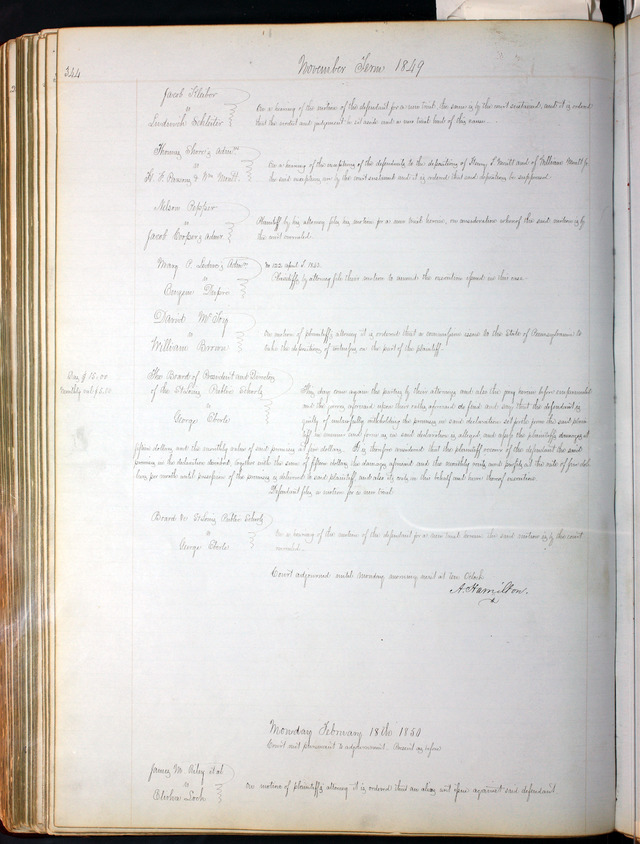 344
November Term 1849
Jacob
vs
Ludwick Schleiter
On a hearing of the motion of the defendant for a new trial, the same is by the court sustained, and it is ordered
that the verdict and judgement be set aside and a new trial had of this cause.
Thomas adms
vs
H. F. & Wm Merritt
On a hearing of the exceptions of the defendants to the depositions of Henry S. Merritt and of William Merritt Jr
the said exceptions are by the court sustained and it is ordered that said depositions be suppressed.
Nelson Pepper
vs
Jacob Cooper's admr.
Plaintiff by his attorney files his motion for a new trial herein, on consideration whereof the said motion is by
the court overruled.
Mary C. Adms
vs
Eugene
No 122 April T.
Plaintiffs by attorney file their motion to amend the execution issued in this case.
David
vs
William Brown
On motion of plaintiff's attorney it is ordered that a commission issue to the State of Pennsylvania to
take the deposition of witnesses on the part of the plaintiff.
Dam. $15.00
Monthly val
The Board of President and Directors
of the St Louis Public Schools
vs
George Eberle
This day come again the parties by their attorneys and also the jury herein before empannelled
and the jurors aforesaid upon their oaths aforesaid do find and say that the defendant is
guilty of unlawfully withholding the premises in said declaration set forth from the said plain
tiff in manner and form as in said declaration is alleged and assess the plaintiffs damages at
fifteen dollars and the monthly value of said premises at five dollars. It is therefore considered that the plaintiff recover of the defendant the said
premises in the declaration described, together with the sum of fifteen dollars the damages aforesaid and the monthly rents and profits at the rate of five dol
lars per month until possession of the premises is delivered to said plaintiff and also its costs in this behalf and have thereof execution.
Defendant files a motion for a new trial
Board &c St Louis Public Schools
vs
George Eberle
On a hearing of the motion of the defendant for a new trial herein the said motion is by the court
overruled.
Court adjourned until Monday morning next at ten Oclock
A. Hamilton.
Monday February 18th 1850
Court met pursuant to adjournment. Present as before
James M. et al
vs
On motion of plaintiff's attorney it is ordered that an alias writ issue against said defendant